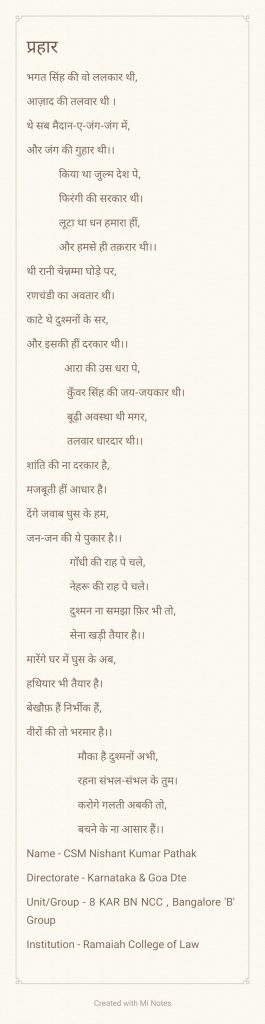 प्रहार
भगत सिंह की वो ललकार थी,
आज़ाद की तलवार थी ।
थे सब मैदान-ए-जंग-जंग में,
और जंग की गुहार थी।।
किया था जुल्म देश पे,
फिरंगी की सरकार थी।
लूटा था धन हमारा हीं,
और हमसे ही तक़रार थी।।
थी रानी चेन्नम्मा घोड़े पर,
रणचंडी का अवतार थी।
काटे थे दुश्मनों के सर,
और इसकी हीं दरकार थी।।
आरा की उस धरा पे,
कुँवर सिंह की जय-जयकार थी।
बूढ़ी अवस्था थी मगर,
तलवार धारदार थी।।
शांति की ना दरकार है,
मजबूती हीं आधार है।
देंगे जवाब घुस के हम,
जन-जन की ये पुकार है।।
गाँधी की राह पे चले,
नेहरू की राह पे चले।
दुश्मन ना समझा फ़िर भी तो,
सेना खड़ी तैयार है।।
मारेंगे घर में घुस के अब,
हथियार भी तैयार है।
बेखौफ़ हैं निर्भीक हैं,
वीरों की तो भरमार है।।
मौका है दुश्मनों अभी,
रहना संभल-संभल के तुम।
करोगे गलती अबकी तो,
बचने के ना आसार हैं।।
Name - CSM Nishant Kumar Pathak
Directorate - Karnataka & Goa Dte
Unit/Group - 8 KAR BN NCC , Bangalore 'B'
Group
Institution - Ramaiah College of Law
Created with Mi Notes